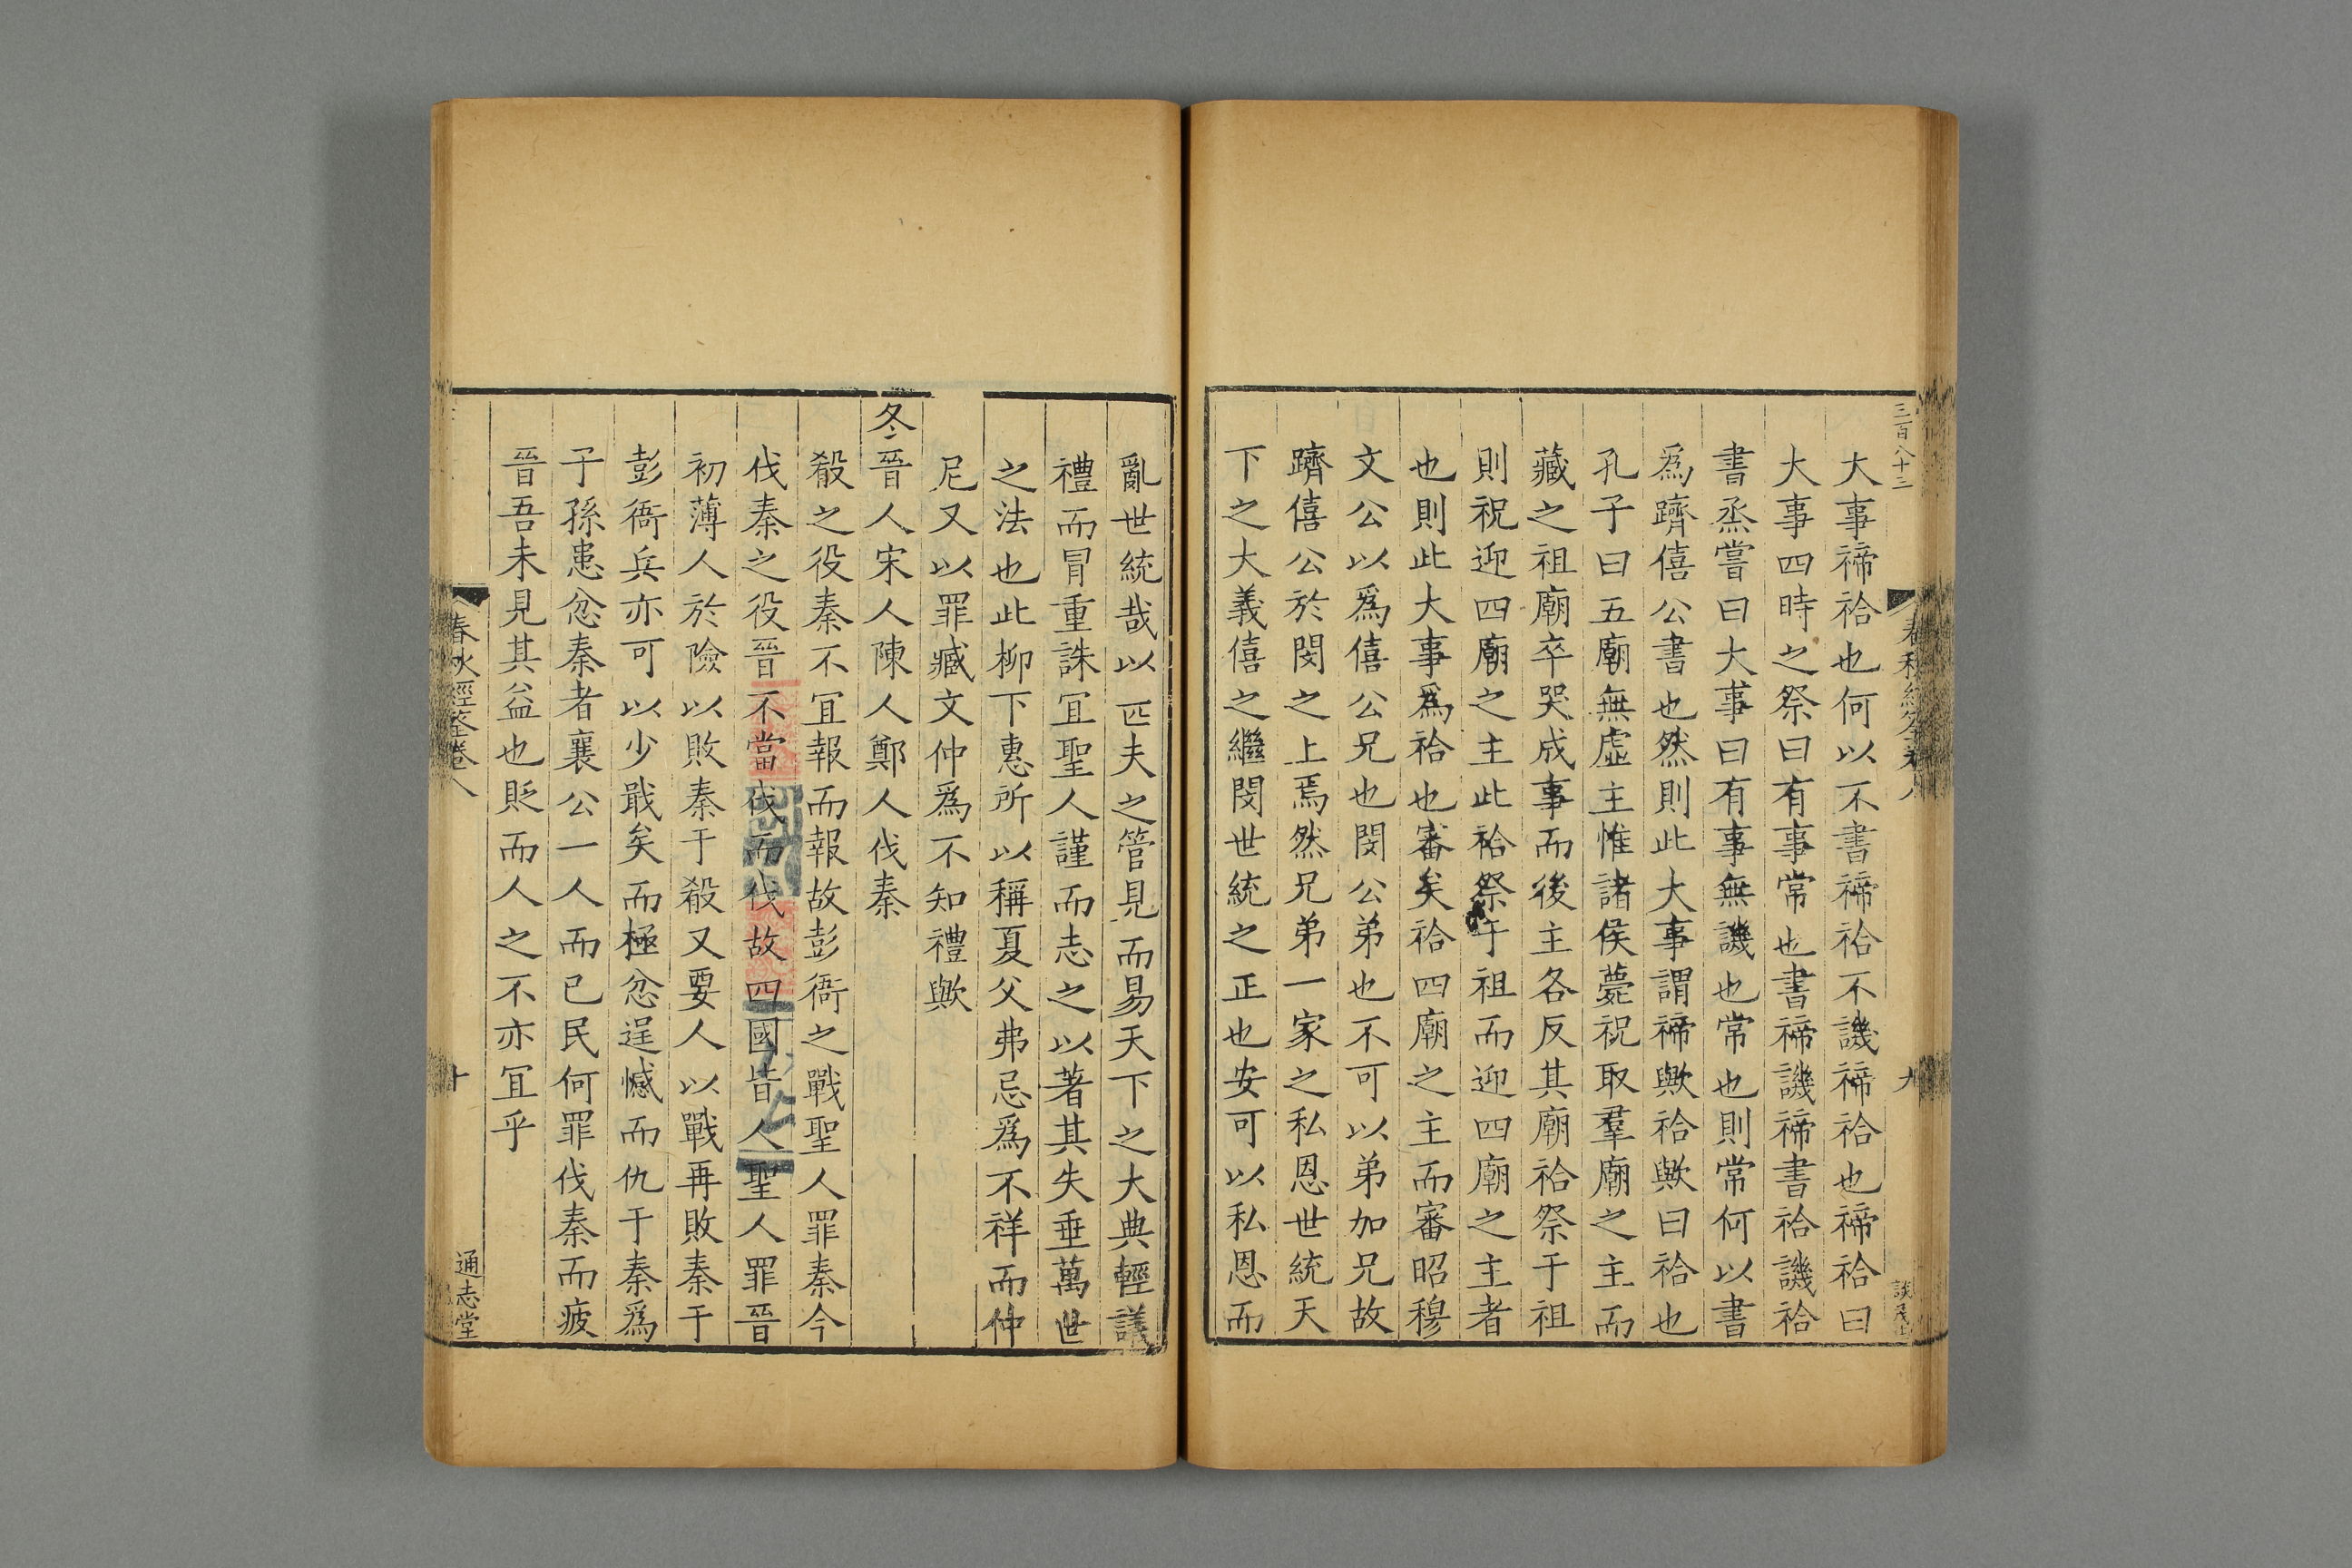 三百八十三
大事禘祫也何以不書禘祫不譏禘祫也禘祫曰
大事四時之祭曰有事常也書禘譏禘書祫譏祫
書烝嘗曰大事曰有事無譏也常也則常何以書
爲躋僖公書也然則此大事謂禘歟祫歟曰祫也
孔子曰五廟無虛主惟諸侯薨祝取羣廟之主而
藏之祖廟卒哭成事而後主各反其廟祫祭于祖
則祝迎四廟之主此祫祭于祖而迎四廟之主者
也則此大事爲祫也審矣祫四廟之主而審昭穆
文公以爲僖公兄也閔公弟也不可以弟加兄故
躋僖公於閔之上焉然兄弟一家之私恩世統天
下之大義僖之繼閔世統之正也安可以私恩而
九
亂世統哉以匹夫之管見而易天下之大典輕議
禮而冒重誅宜聖人謹而志之以著其失垂萬世
之法也此柳下惠所以稱夏父弗忌爲不祥而仲
尼又以罪臧文仲爲不知禮歟
冬晉人宋人陳人鄭人伐秦
殽之役秦不宜報而報故彭衙之戰聖人罪秦今
伐秦之役晉不當伐而伐故四國皆人聖人罪晉
初薄人於險以敗秦于殽又要人以戰再敗秦于
彭衙兵亦可以少戢矣而極忿逞憾而仇于秦爲
子孫患忿秦者襄公一人而已民何罪伐秦而疲
晉吾未見其益也貶而人之不亦宜乎
春秋經筌卷八
十
通志堂